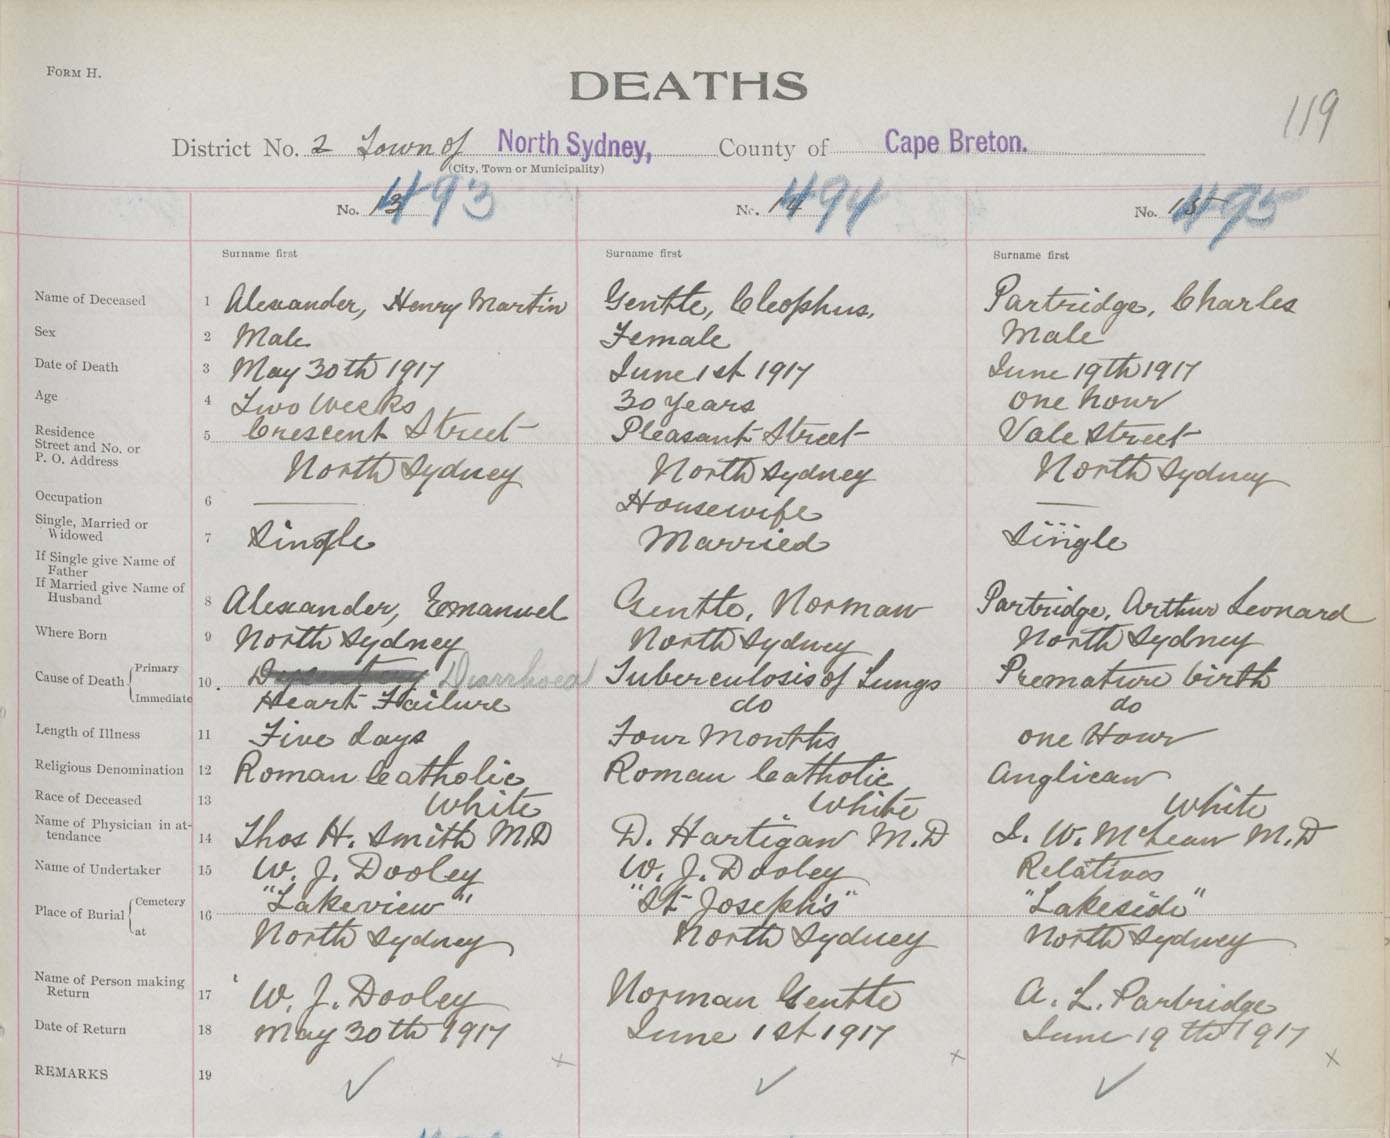 FORM H.
DEATHS
119
District No. 2 Town of North Sydney, County of Cape Breton.
(City, Town or Municipality)
No. 13 493 No. 14 494 No. 15 495
Surname first Surname first Surname first
Name of Deceased 1 Alexander, Henry Martin Gentle, Cleophus, Partridge, Charles
Sex 2 Male Female Male
Date of Death 3 May 30th 1917 June 1st 1917 June 19th 1917
Age 4 Two Weeks 30 years one hour
Residence Street and No. or P. O. Address 5 Crescent Street Pleasant Street Vale Street
North Sydney North Sydney North Sydney
Occupation 6 Housewife
Single, Married or Widowed 7 Single Married Single
If Single give Name of Father
If Married give Name of Husband 8 Alexander, Emanuel Gentle, Norman Partridge, Arthur Leonard
Where Born 9 North Sydney North Sydney North Sydney
Cause of Death Primary 10 Dysentery Diarrhoea Tuberculosis of Lungs Premature birth
Immediate Heart Failure do do
Length of Illness 11 Five days Four Months one Hour
Religious Denomination 12 Roman Catholic Roman Catholic Anglican
Race of Deceased 13 White White White
Name of Physician in attendance 14 Thos H. Smith M.D D. Hartigan M.D J. W. McLean M.D
Name of Undertaker 15 W. J. Dooley W. J. Dooley Relatives
Place of Burial Cemetery 16 "Lakeview" "St Joseph's" "Lakeside"
at North Sydney North Sydney North Sydney
Name of Person making Return 17 W. J. Dooley Norman Gentle A. L. Partridge
Date of Return 18 May 30th 1917 June 1st 1917 June 19th 1917
REMARKS 19 ✓ x ✓ x ✓ x